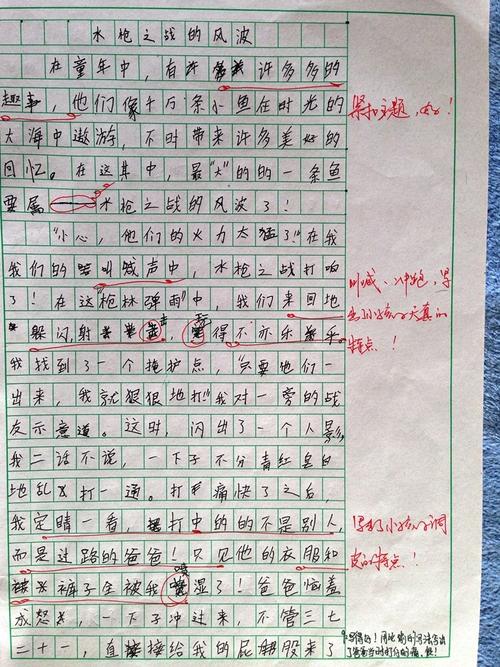 水枪之战的风波
在童年中，有许多多的
趣事，他们像千万条小鱼在时光的
大海中遨游，不时带来许多美好的
回忆。在这其中，最"大"的的一条鱼
要属水枪之战的风波了！
"小心，他们的火力太猛了！"在我
我们的叫喊声中，水枪之战打响
了！在这"枪林弹雨"中，我们来回地
躲闪，射击，玩得不亦乐乎
我找到了一个掩护点，"只要他们一
出来，我就狠狠地打！"我对一旁的战
友示意道。这时，闪出了一个人影，
我二话不说，一下子不分青红皂白
地乱打一通。打痛快了之后，
我定睛一看，打中的的不是别人，
而是过路的爸爸！只见他的衣服和
裤子全被我喷湿了！爸爸恼羞
成怒，一下子冲过来，不管三七
二十一，直接给我的屁股来了
紧扣主题，
叫喊、
小孩子天真的
特点！
写出了小孩子调
皮的特点！